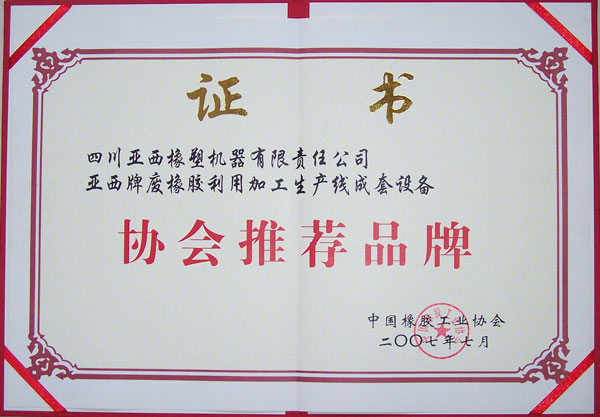 证书
四川亚西橡塑机器有限责任公司
亚西牌废橡胶利用加工生产线成套设备
协会推荐品牌
中国橡胶工业协会
二〇〇七年七月